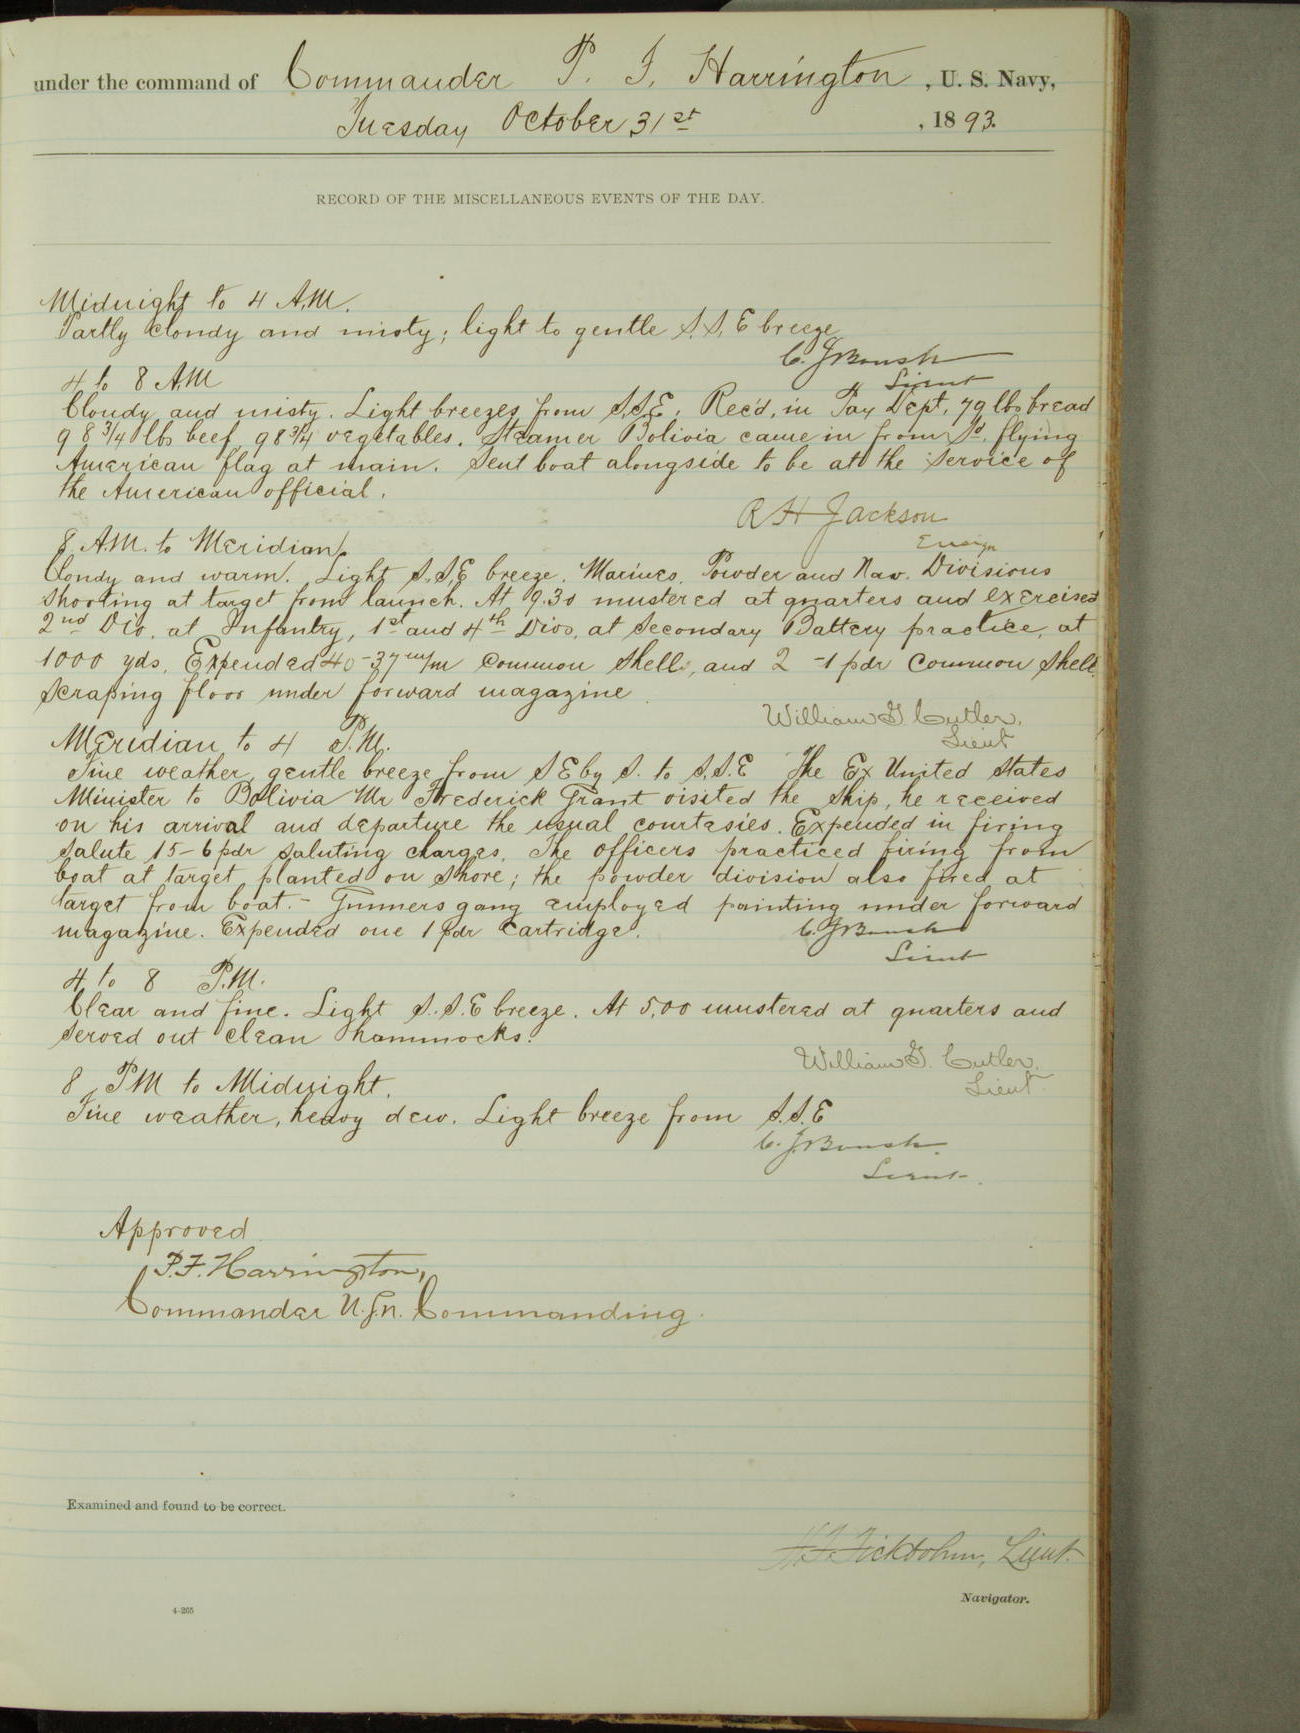 under the command of Commander P. F. Harrington, U. S. Navy,
Tuesday October 31st, 1893.
RECORD OF THE MISCELLANEOUS EVENTS OF THE DAY.
Midnight to 4 A.M.
Partly cloudy and misty; light to gentle S.S.E breeze
C. J Boush
Lieut
4 to 8 A.M
Cloudy and misty. Light breezes from S.S.E. Rec'd, in Pay Dept, 79 lbs bread
98 3/4 lbs beef, 98 3/4 vegetables. Steamer Bolivia came in from Sd. flying
American flag at main. Sent boat alongside to be at the service of
the American official.
R H Jackson
Ensign
8 A.M. to Meridian.
Cloudy and warm. Light S.S.E breeze. Marines, Powder and Nav. Divisions
shooting at target from launch. At 9.30 mustered at quarters and exercised
2nd Div. at Infantry, 1st and 4th Divs. at Secondary Battery practice, at
1000 yds. Expended 40-37 m/m common shell, and 2-1 pdr common shell.
Scraping floor under forward magazine.
William G Cutler.
Lieut
Meridian to 4 P.M.
Fine weather, gentle breeze from SE by S. to S.S.E The Ex United States
Minister to Bolivia Mr Frederick Grant visited the ship, he received
on his arrival and departure the usual courtesies. Expended in firing
salute 15-6 pdr saluting charges. The officers practiced firing from
boat at target planted on shore; the powder division also fired at
target from boat.- Gunners gang employed painting under forward
magazine. Expended one 1 pdr cartridge.
C. J Boush
Lieut
4 to 8 P.M.
Clear and fine. Light S.S.E breeze. At 5.00 mustered at quarters and
served out clean hammocks.
William G. Cutler.
Lieut
8 P.M to Midnight.
Fine weather, heavy dew. Light breeze from S.S.E
C. J. Boush.
Lieut.
Approved
P. F. Harrington,
Commander U.S.N. Commanding.
Examined and found to be correct.
Lieut.
Navigator.
4-265